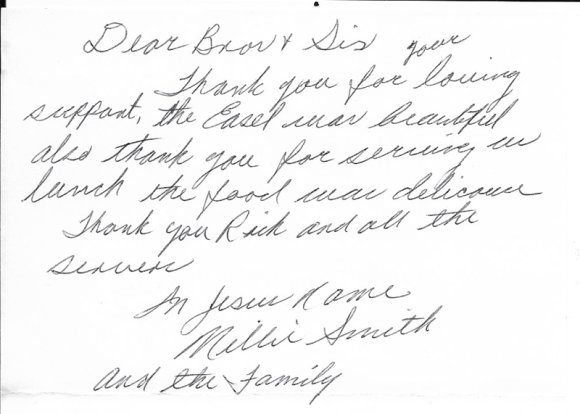 Dear Bros & Sis your
Thank you for loving
support, the Easel was beautiful
also thank you for serving us
lunch the food was delicous
Thank you Rick and all the
servers
In Jesus Name
Millie Smith
and the Family